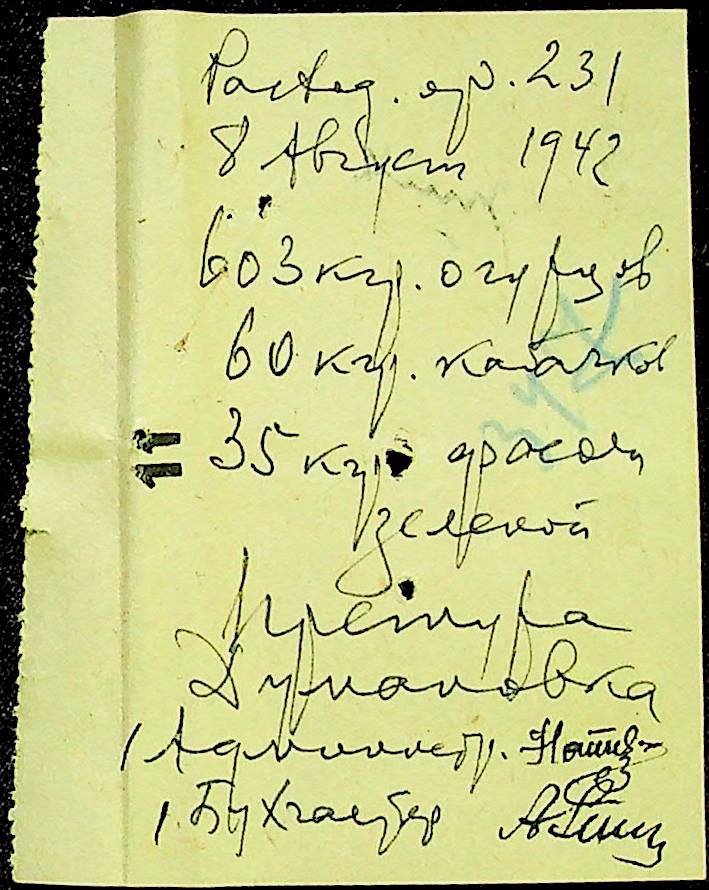 8 Август 1942
603 кгр. огурцов
60 кгр. кабачков
35 кгр. фасоли
зеленой
Претура
Думановка
Администр.
Бухгалтер